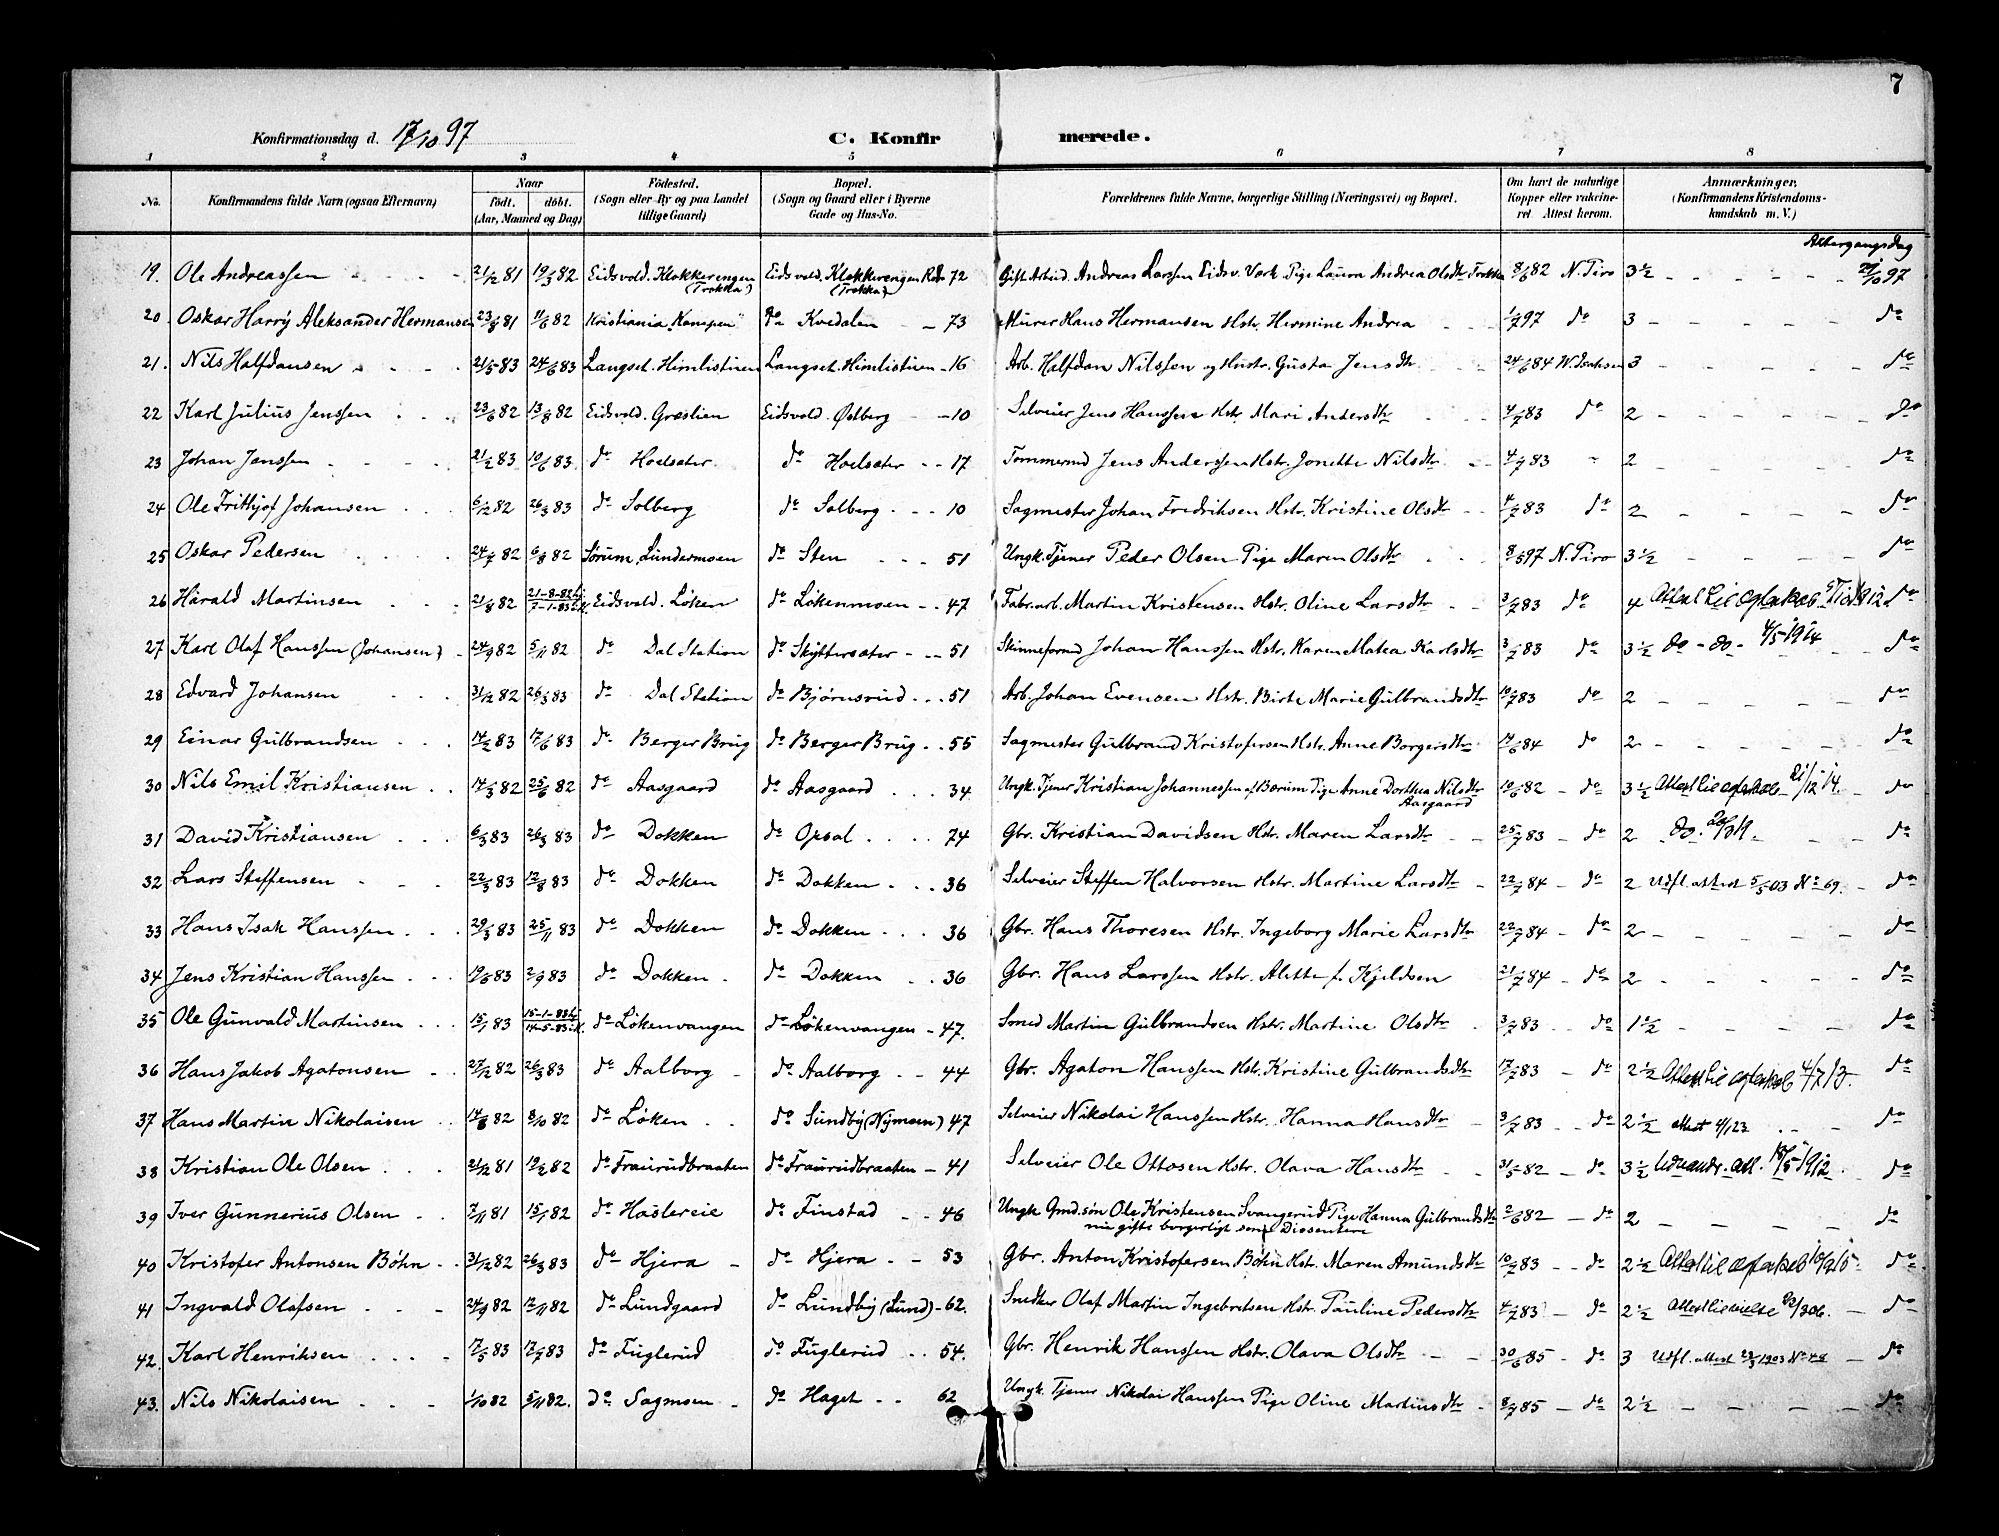 7
Konfirmationsdag d. 17/10 97 C. Konfirmerede.
1 2 3 4 5 6 7 8
No. Konfirmandens fulde Navn (ogsaa Efternavn) Naar født. døbt. (Aar, Maaned og Dag) Fødested. (Sogn eller By og paa Landet tillige Gaard) Bopæl. (Sogn og Gaard eller i Byerne Gade og Hus-No. Forældrenes fulde Navne, borgerlige Stilling (Næringsvei) og Bopæl. Om havt de naturlige Kopper eller vaksineret. Attest herom. Anmærkninger. (Konfirmandens Kristendomskundskab m. V.)
Altergangsdag
19. Ole Andreassen 21/12 81 19/3 82 Eidsvold. Klokkerengen (Trokka) Eidsvold. Klokkerengen (Trokka) 72 Gift Arbeid. Andreas Larssen Eidsv. Værk Pige Laura Andrea Olsdtr Trokka 8/6 82 N. Piro 3½ 24/10 97
20 Oskar Harry Aleksander Hermansen 23/8 81 11/6 82 Kristiania "Kampen" do Kvedalen 73 Murer Hans Hermansen Hstr. Hermine Andrea 1/7 97 do 3 do
21. Nils Halfdansen 21/5 83 24/6 83 Langset. Himlistuen Langset. Himlistuen 16 Arb. Halfdan Nilssen og Hustr. Gusta Jensdtr. 24/6 84 W. Isachsen 3 do
22 Karl Julius Jenssen 23/6 82 13/8 82 Eidsvold. Græslien Eidsvold. Østberg 10 Selveier Jens Hanssen Hstr. Mari Andersdtr 4/7 83 do 2 do
23 Johan Jenssen 21/2 83 10/6 83 do Hoelsæter. do Hoelsæter 17 Tømmermd Jens Anderssen Hstr. Jonette Nilsdtr. 4/7 83 " 2 do
24 Ole Frithjof Johansen 6/12 82 26/3 83 do Solberg do Solberg 10 Sagmester Johan Fredriksen Hstr. Kristine Olsdtr 4/7 83 do 2 do
25 Oskar Pedersen 24/7 82 6/8 82 Sørum, Lundermoen do Sten 51 Ungk. Tjener Peder Olsen Pige Maren Olsdtr 8/5 97 N. Piro 3½ do
26 Harald Martinsen 21/8 82 21-8-82 hj 7-1-83 i K. Eidsvold. Løken do Løkenmoen 47 Fabr.arb. Martin Kristensen Hstr. Oline Larsdtr 3/7 83 do 4 Attest til ægteskab do
27 Karl Olaf Hanssen (Johansen) 24/9 82 5/11 82 do Dal Station do Skyttersæter 51 Skinneformd Johan Hanssen Hstr. Karen Matea Karlsdtr 3/7 83 do 3½ do - do - 4/5-1914 do
28 Edvard Johansen 31/12 82 26/3 83 do Dal Station do Bjørnsrud 51 Arb. Johan Evensen Hstr. Birte Marie Gulbrandsdtr 10/7 83 do 2 do
29 Einar Gulbrandsen 14/2 83 17/6 83 do Berger Brug do Berger Brug 55 Sagmester Gulbrand Kristofersen Hstr. Anne Borgersdtr 17/6 84 do 2 do
30 Nils Emil Kristiansen 14/3 82 25/6 82 do Aasgaard do Aasgaard 34 Ungk. Tjener Kristian Johannessen f. Bærum Pige Anne Dorthea Nilsdtr Aasgaard 10/6 82 do 3½ Attest til ægteskab 21/12 14. do
31 David Kristiansen 6/3 83 26/3 83 do Dokken do Opsal 74 Gbr. Kristian Davidsen Hstr. Maren Larsdtr 25/7 83 do 2 do. do
32 Lars Steffensen 22/5 83 12/8 83 do Dokken do Dokken 36 Selveier Steffen Halvorsen Hstr. Martine Larsdtr 22/7 84 do 2 Udfl. attest 5/5 03 No 69. do
33 Hans Isak Hanssen 29/3 83 25/11 83 do Dokken do Dokken 36 Gbr. Hans Thoresen Hstr. Ingeborg Marie Larsdtr 22/7 84 do 2 do
34 Jens Kristian Hanssen 19/6 83 2/9 83 do Dokken do Dokken 36 Gbr. Hans Larssen Hstr. Alette f. Kjeldsen 21/7 84 do 2 do
35 Ole Gunvald Martinsen 15/1 83 15-1-83 hj 14-5-83 i K. do Løkenvangen do Løkenvangen 47. Smed Martin Gulbrandsen Hstr. Martine Olsdtr 3/7 83 do 1½ do
36 Hans Jakob Agatonsen 27/12 82 26/3 83 do Aalborg do Aalborg 44 Gbr. Agaton Hanssen Hstr. Kristine Gulbrandsdtr. 17/7 83 do 2½ Attest til ægteskab 4/7 13. do
37 Hans Martin Nikolaisen 14/8 82 8/10 82 do Løken do Sundby (Nymoen) 47 Selveier Nikolai Hanssen Hstr. Hanna Hansdtr 3/7 83 do 2½ attest 4/1 23 do
38 Kristian Ole Olsen 21/12 81 19/2 82 do Fraurudbraaten do Fraurudbraaten 41 Selveier Ole Ottosen Hstr. Olava Hansdtr 31/5 82 do 3½ Udvandr. att. 18/5-1912 do
39 Iver Gunnerius Olsen 7/11 81 15/1 82 do Haslereie do Finstad 46 Ungk. Gmd.søn Ole Kristensen Svangerud Pige Hanna Gulbrandsdtr nu gifte borgerligt som Dissentere 2/6 82 do 2 do
40 Kristofer Antonsen Bøhn 31/12 82 26/3 83 do Hjera do Hjera 53 Gbr. Anton Kristofersen Bøhn Hstr. Maren Amundsdtr 10/7 83 do 2½ Attest til ægteskab 10/9 15 do
41 Ingvald Olafsen 24/9 82 12/11 82 do Lundgaard do Lundby (Lund) 62. Snedker Olaf Martin Ingebretsen Hstr. Pauline Pedersdtr 4/7 83 do 2½ Attest til vielse do
42. Karl Henriksen 17/5 83 17/7 83 do Fuglerud do Fuglerud 54. Gbr. Henrik Hanssen Hstr. Olava Olsdtr 30/6 85 do 3 Udfl. attest 1903 No 48 do
43. Nils Nikolaisen 1/10 82 5/11 82. do Sagmoen do Haget 62 Ungk. Tjener Nikolai Hanssen Pige Oline Martinsdtr 8/7 85 do 2½ do